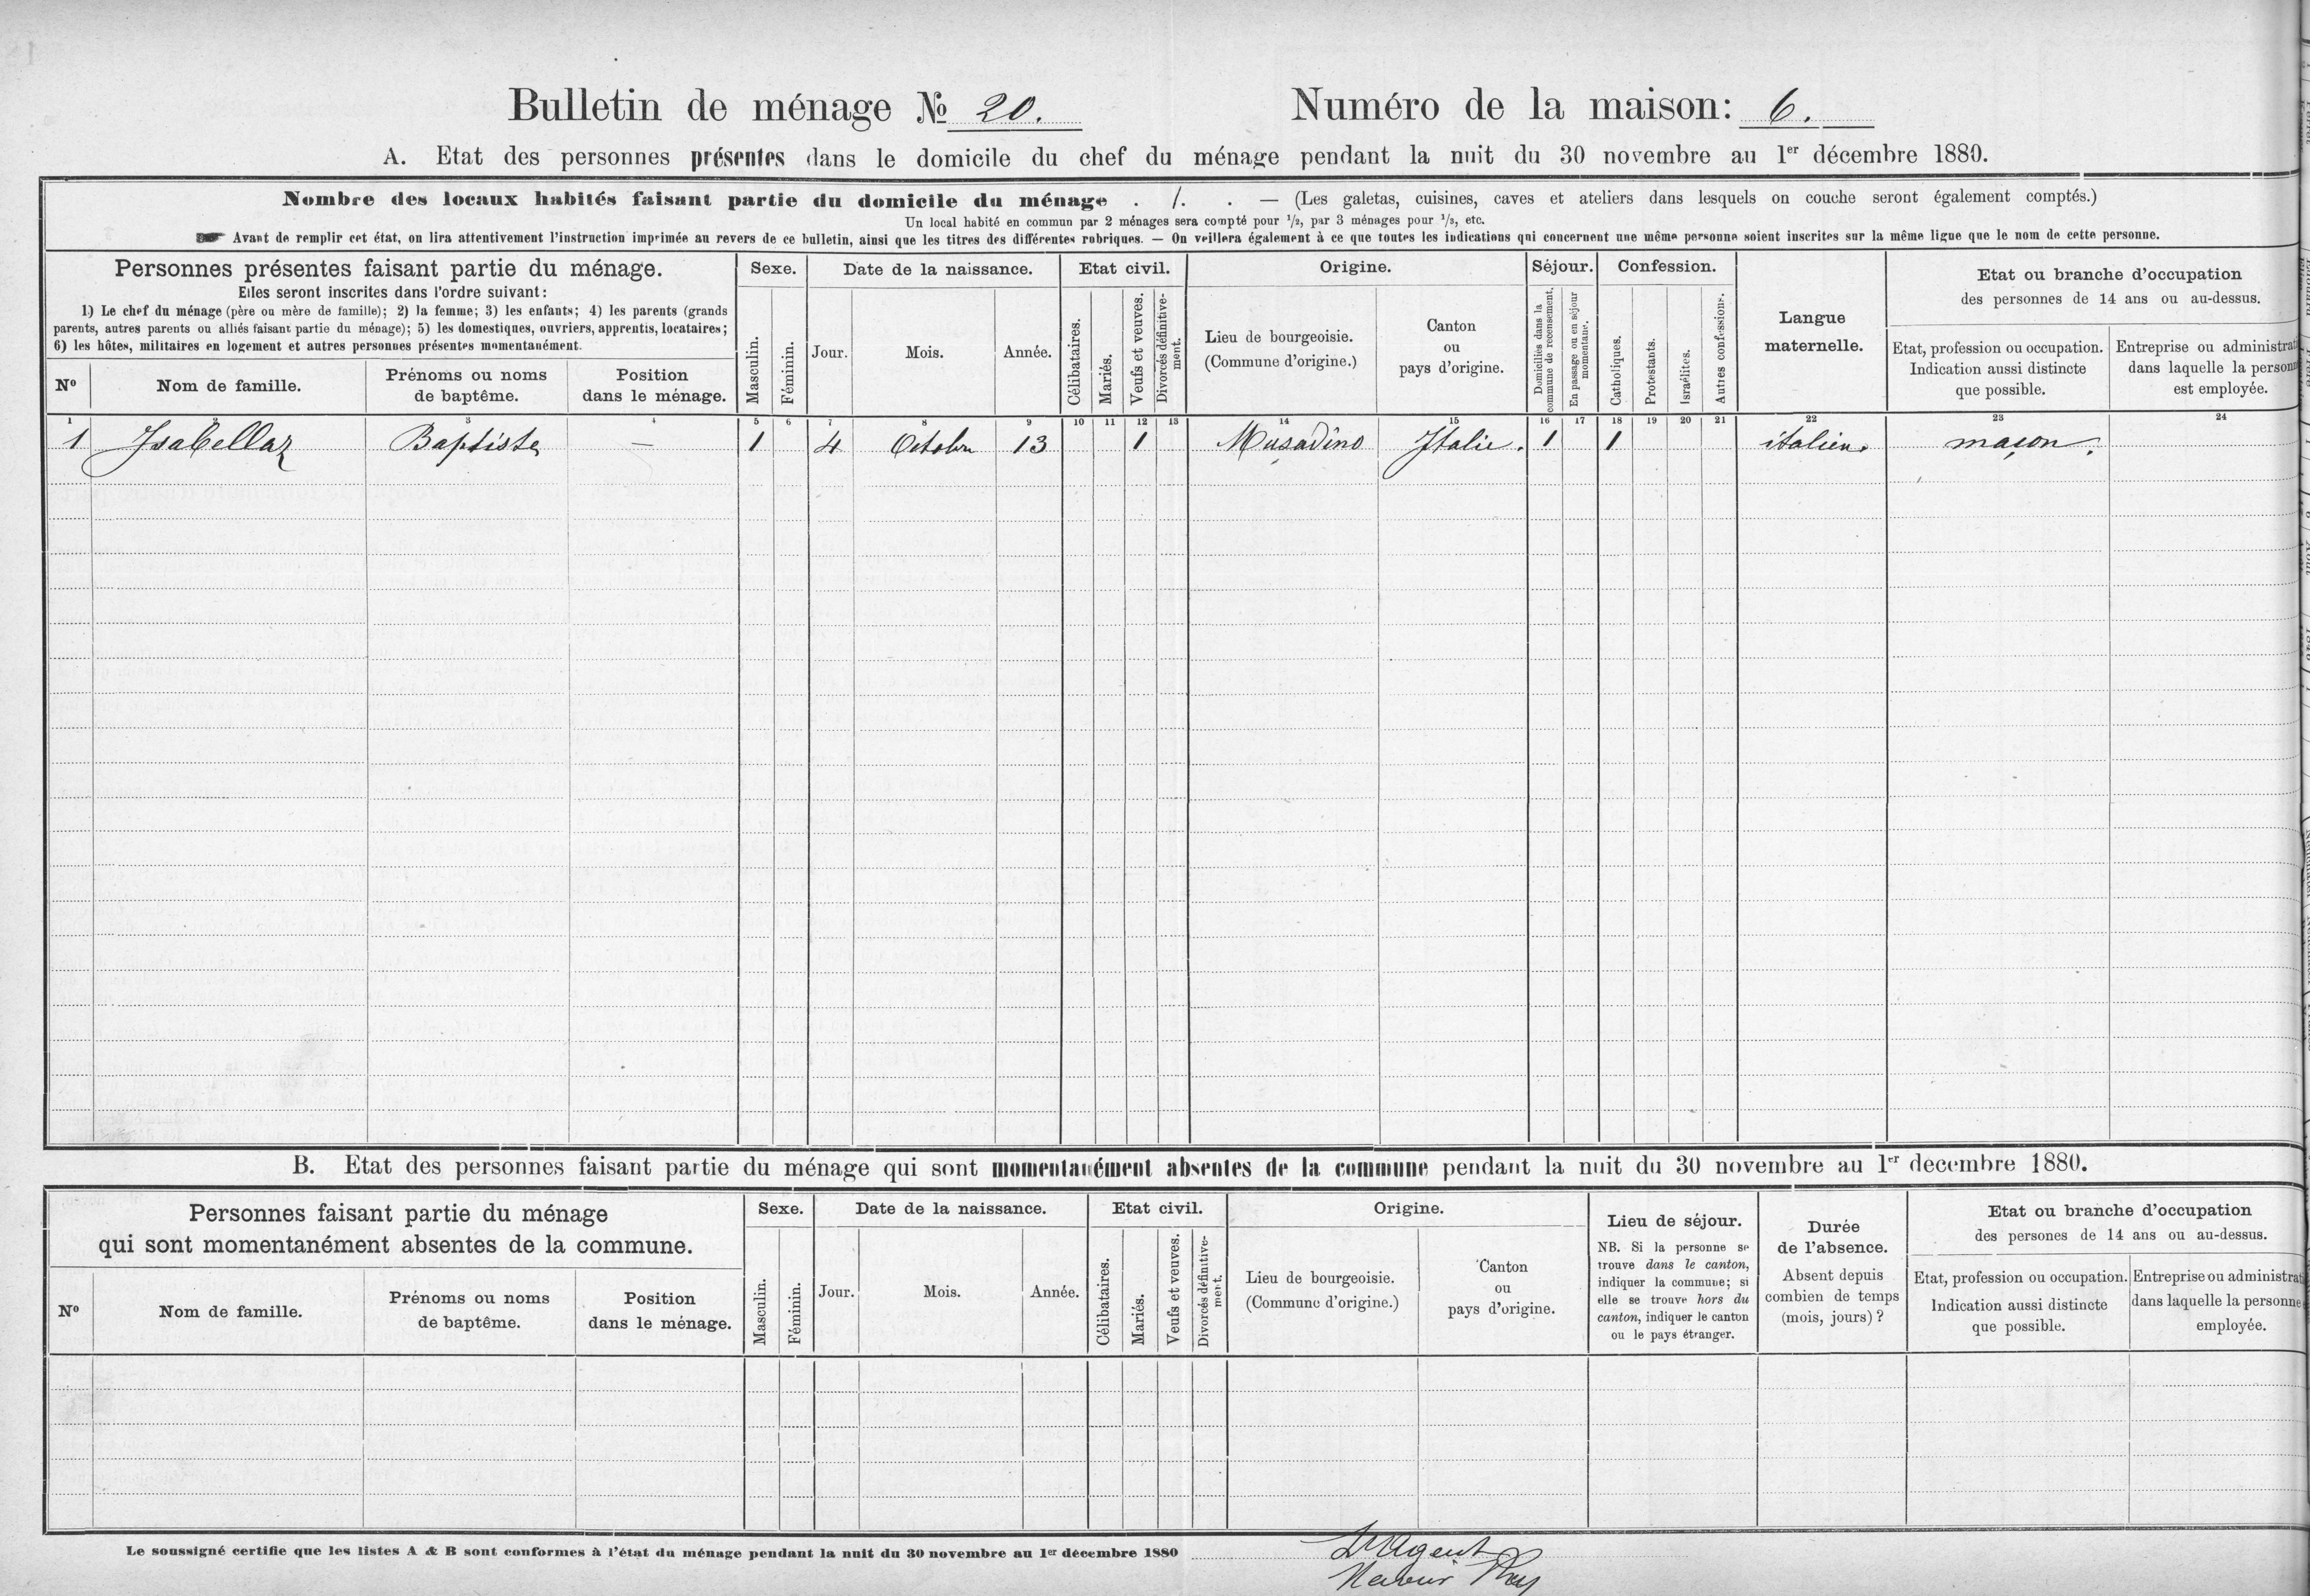 Bulletin de ménage No 20. Numéro de la maison: 6.
A. Etat des personnes présentes dans le domicile du chef du ménage pendant la nuit du 30 novembre au 1er décembre 1880.
Nombre des locaux habités faisant partie du domicile du ménage . 1. . — (Les galetas, cuisines, caves et ateliers dans lesquels on couche seront également comptés.)
Un local habité en commun par 2 ménages sera compté pour 1/2, par 3 ménages pour 1/3, etc.
☛ Avant de remplir cet état, on lira attentivement l'instruction imprimée au revers de ce bulletin, ainsi que les titres des différentes rubriques. — On veillera également à ce que toutes les indications qui concernent une même personne soient inscrites sur la même ligne que le nom de cette personne.
Personnes présentes faisant partie du ménage.
Elles seront inscrites dans l'ordre suivant:
1) Le chef du ménage (père ou mère de famille); 2) la femme; 3) les enfants; 4) les parents (grands
parents, autres parents ou alliés faisant partie du ménage); 5) les domestiques, ouvriers, apprentis, locataires;
6) les hôtes, militaires en logement et autres personnes présentes momentanément.
No
Nom de famille.
Prénoms ou noms
de baptême.
Position
dans le ménage.
Sexe.
Masculin.
Féminin.
Date de la naissance.
Jour.
Mois.
Année.
Etat civil.
Célibataires.
Mariés.
Veufs et veuves.
Divorcés définitive-
ment.
Origine.
Lieu de bourgeoisie.
(Commune d'origine.)
Canton
ou
pays d'origine.
Séjour.
Domiciliés dans la
commune de recensement.
En passage ou en séjour
momentané.
Confession.
Catholiques.
Protestants.
Israélites.
Autres confessions.
Langue
maternelle.
Etat ou branche d'occupation
des personnes de 14 ans ou au-dessus.
Etat, profession ou occupation.
Indication aussi distincte
que possible.
Entreprise ou administrat
dans laquelle la personn
est employée.
1 2 3 4 5 6 7 8 9 10 11 12 13 14 15 16 17 18 19 20 21 22 23 24
1 Isabellaz Baptiste — 1 4 Octobre 13 1 Musadino Italie. 1 1 italien. maçon.
B. Etat des personnes faisant partie du ménage qui sont momentanément absentes de la commune pendant la nuit du 30 novembre au 1er decembre 1880.
Personnes faisant partie du ménage
qui sont momentanément absentes de la commune.
No
Nom de famille.
Prénoms ou noms
de baptême.
Position
dans le ménage.
Sexe.
Masculin.
Féminin.
Date de la naissance.
Jour.
Mois.
Année.
Etat civil.
Célibataires.
Mariés.
Veufs et veuves.
Divorcés définitive-
ment.
Origine.
Lieu de bourgeoisie.
(Commune d'origine.)
Canton
ou
pays d'origine.
Lieu de séjour.
NB. Si la personne se
trouve dans le canton,
indiquer la commune; si
elle se trouve hors du
canton, indiquer le canton
ou le pays étranger.
Durée
de l'absence.
Absent depuis
combien de temps
(mois, jours) ?
Etat ou branche d'occupation
des persones de 14 ans ou au-dessus.
Etat, profession ou occupation.
Indication aussi distincte
que possible.
Entreprise ou administrat
dans laquelle la personne
employée.
Le soussigné certifie que les listes A & B sont conformes à l'état du ménage pendant la nuit du 30 novembre au 1er décembre 1880
L'Agent